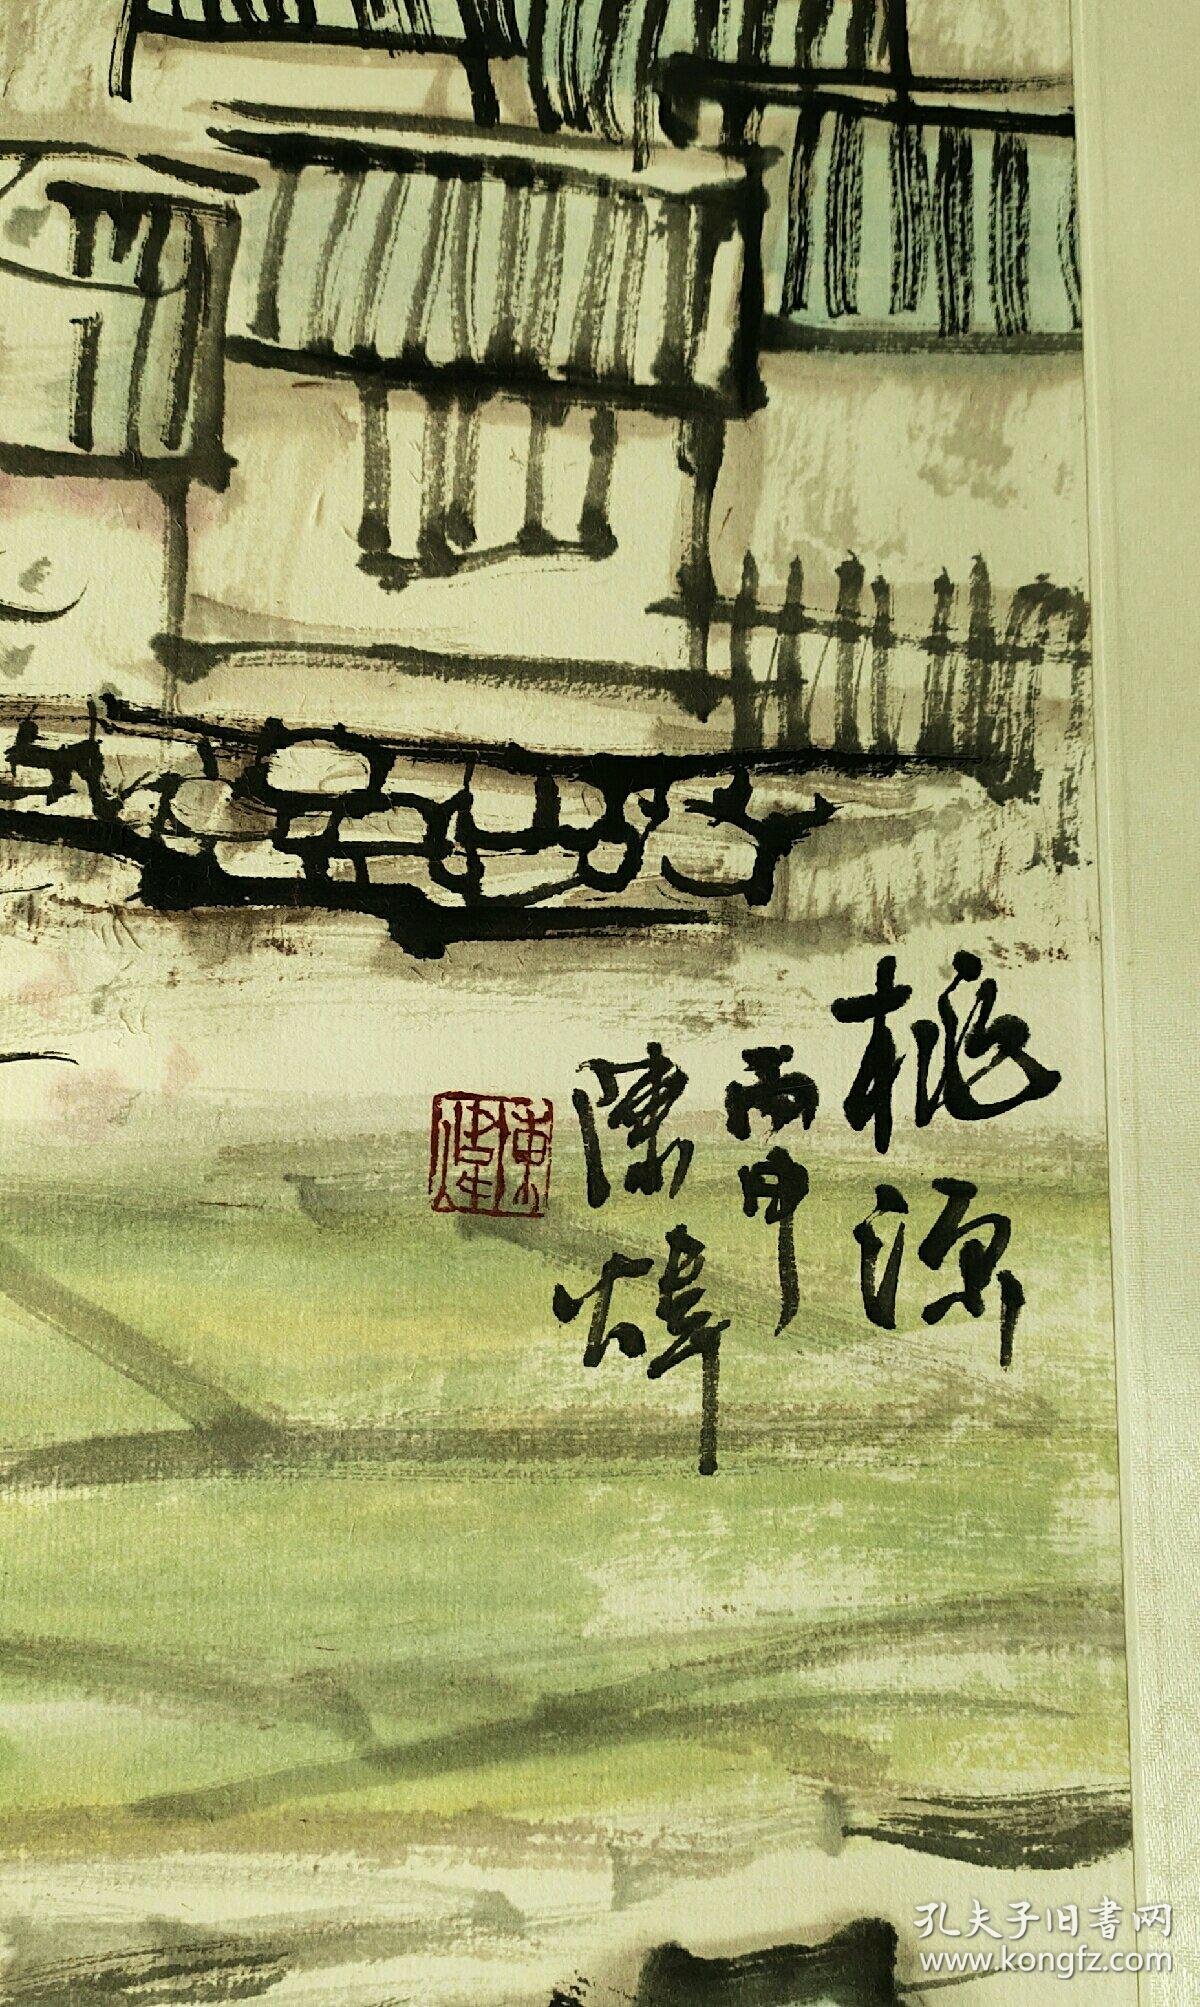 桃源
丙申
陳煒
孔夫子旧書网
www.kongfz.com